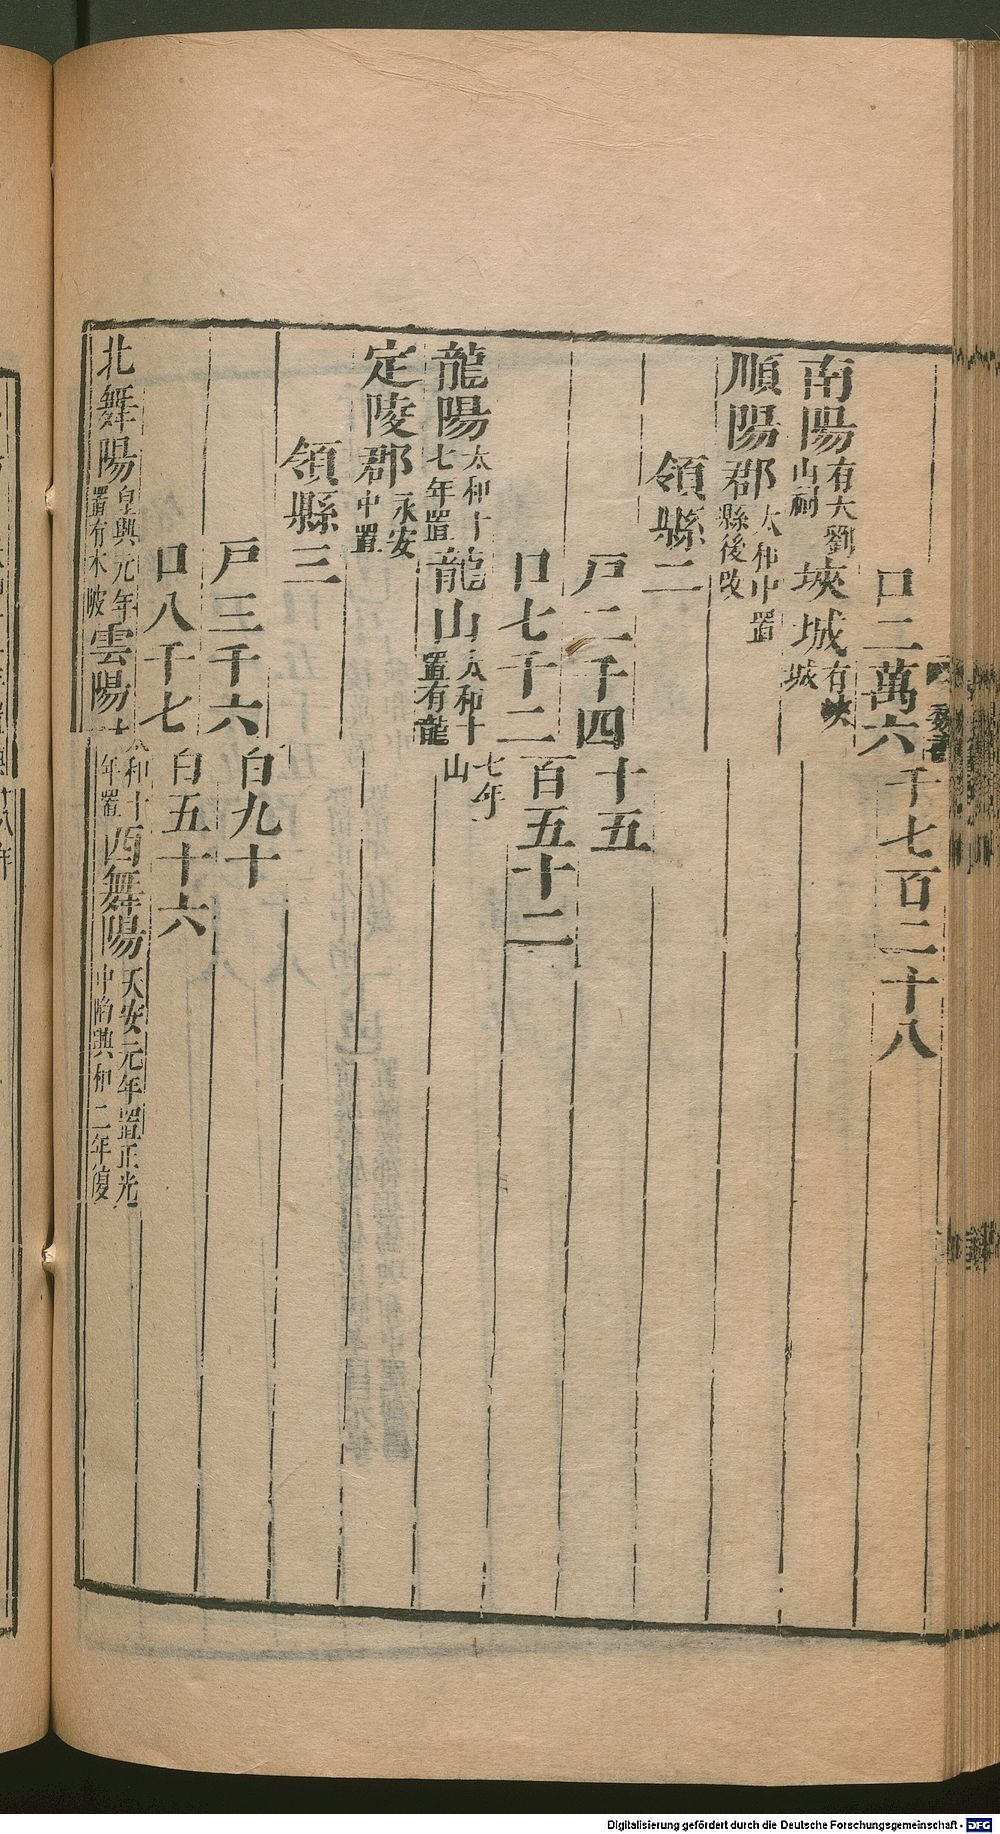 口二萬六千七百二十八
南陽有大劉山祠㚒城有㚒城
順陽郡太和中置縣後改
領縣二
戸二千四十五
口七千二百五十二
龍陽太和十七年置龍山太和十七年置有龍山
定陵郡永安中置
領縣三
戸三千六百九十
口八千七百五十六
北舞陽皇興元年置有木陂雲陽太和十一年置西舞陽天安元年置正光中陷興和二年復
Digitalisierung gefördert durch die Deutsche Forschungsgemeinschaft - DFG